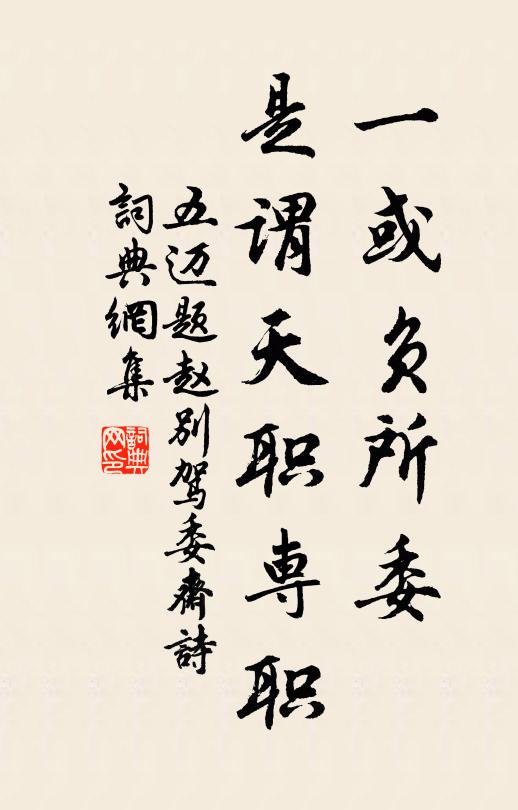 一或负所委
是谓天职専职
五迈题赵别驾委斋詩
詞典網集
詞典网印